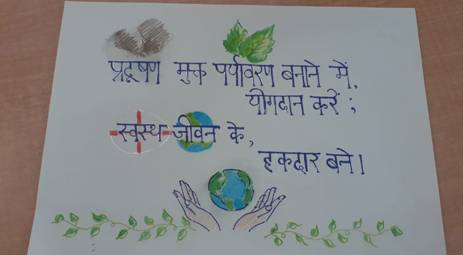 प्रदूषण मुक्त पर्यावरण बनाने में,
योगदान करें ;
स्वस्थ जीवन के,
हकदार बने।